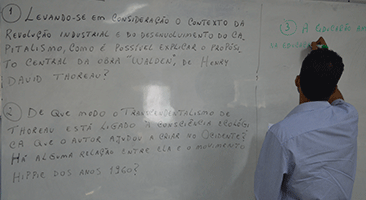 ① LEVANDO-SE EM CONSIDERAÇÃO O CONTEXTO DA
REVOLUÇÃO INDUSTRIAL E DO DESENVOLVIMENTO DO CA-
PITALISMO, COMO É POSSÍVEL EXPLICAR O PROPÓSI-
TO CENTRAL DA OBRA "WALDEN", DE HENRY
DAVID THOREAU?
② DE QUE MODO O TRANSCENDENTALISMO DE
THOREAU ESTÁ LIGADO À CONSCIÊNCIA ECOLÓGI-
CA QUE O AUTOR AJUDOU A CRIAR NO OCIDENTE?
HÁ ALGUMA RELAÇÃO ENTRE ELA E O MOVIMENTO
HIPPIE DOS ANOS 1960?
③ A EDUCAÇÃO